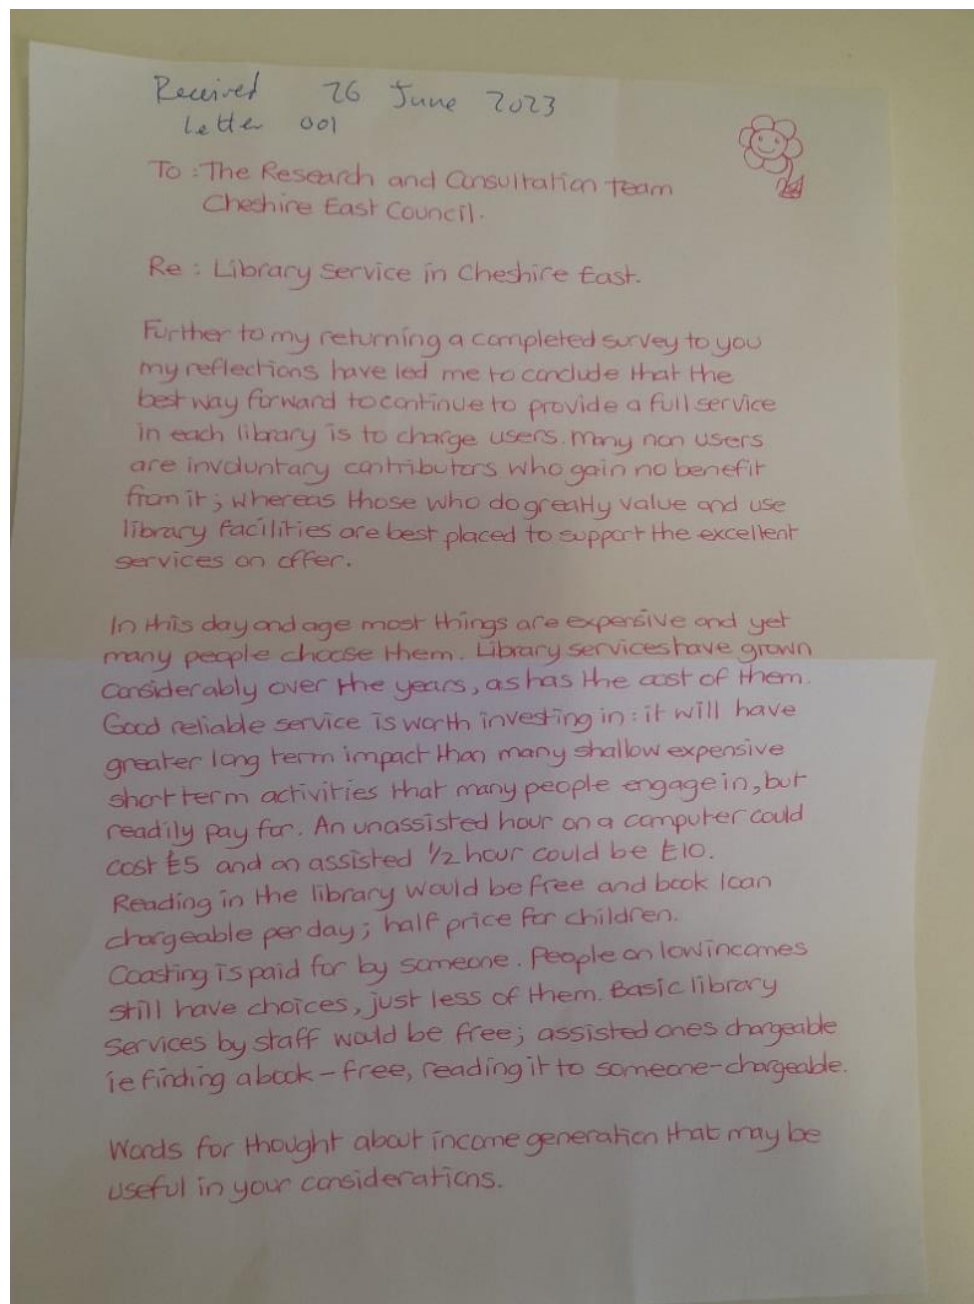 Received 26 June 2023
Letter 001
To : The Research and Consultation team
Cheshire East Council.
Re : Library Service in Cheshire East.
Further to my returning a completed survey to you
my reflections have led me to conclude that the
best way forward to continue to provide a full service
in each library is to charge users. Many non users
are involuntary contributors who gain no benefit
from it; whereas those who do greatly value and use
library facilities are best placed to support the excellent
services on offer.
In this day and age most things are expensive and yet
many people choose them. Library services have grown
considerably over the years, as has the cost of them.
Good reliable service is worth investing in: it will have
greater long term impact than many shallow expensive
short term activities that many people engage in, but
readily pay for. An unassisted hour on a computer could
cost £5 and an assisted 1/2 hour could be £10.
Reading in the library would be free and book loan
chargeable per day; half price for children.
Coasting is paid for by someone. People on low incomes
still have choices, just less of them. Basic library
services by staff would be free; assisted ones chargeable
ie finding a book - free, reading it to someone - chargeable.
Words for thought about income generation that may be
useful in your considerations.